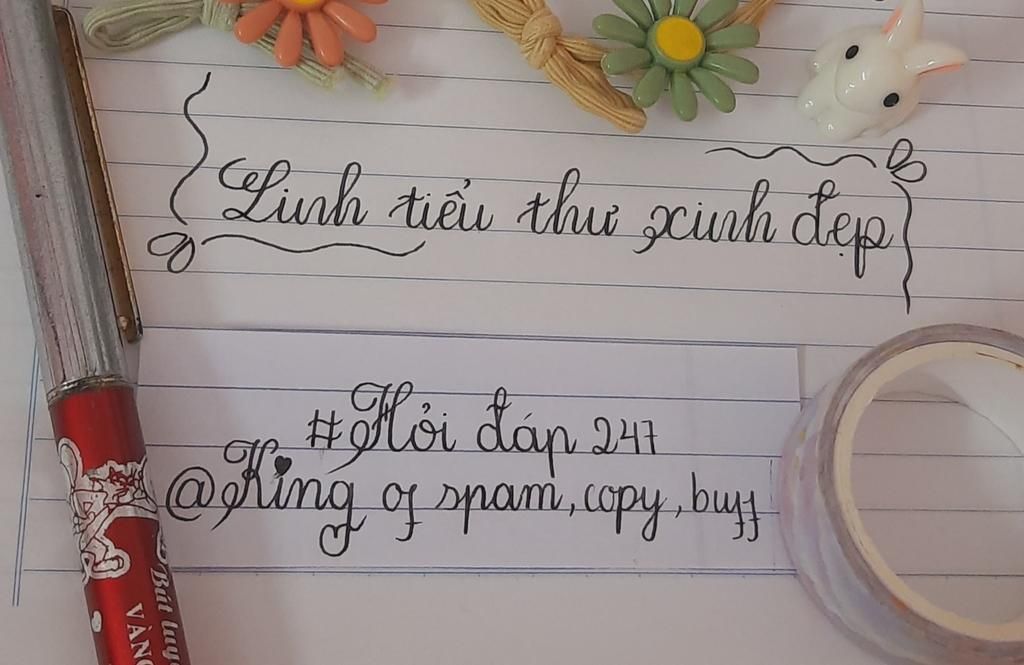 Linh tiểu thư xinh đẹp
#Hỏi đáp 247
@King of spam, copy, buff
Bút luyện
VÀNG